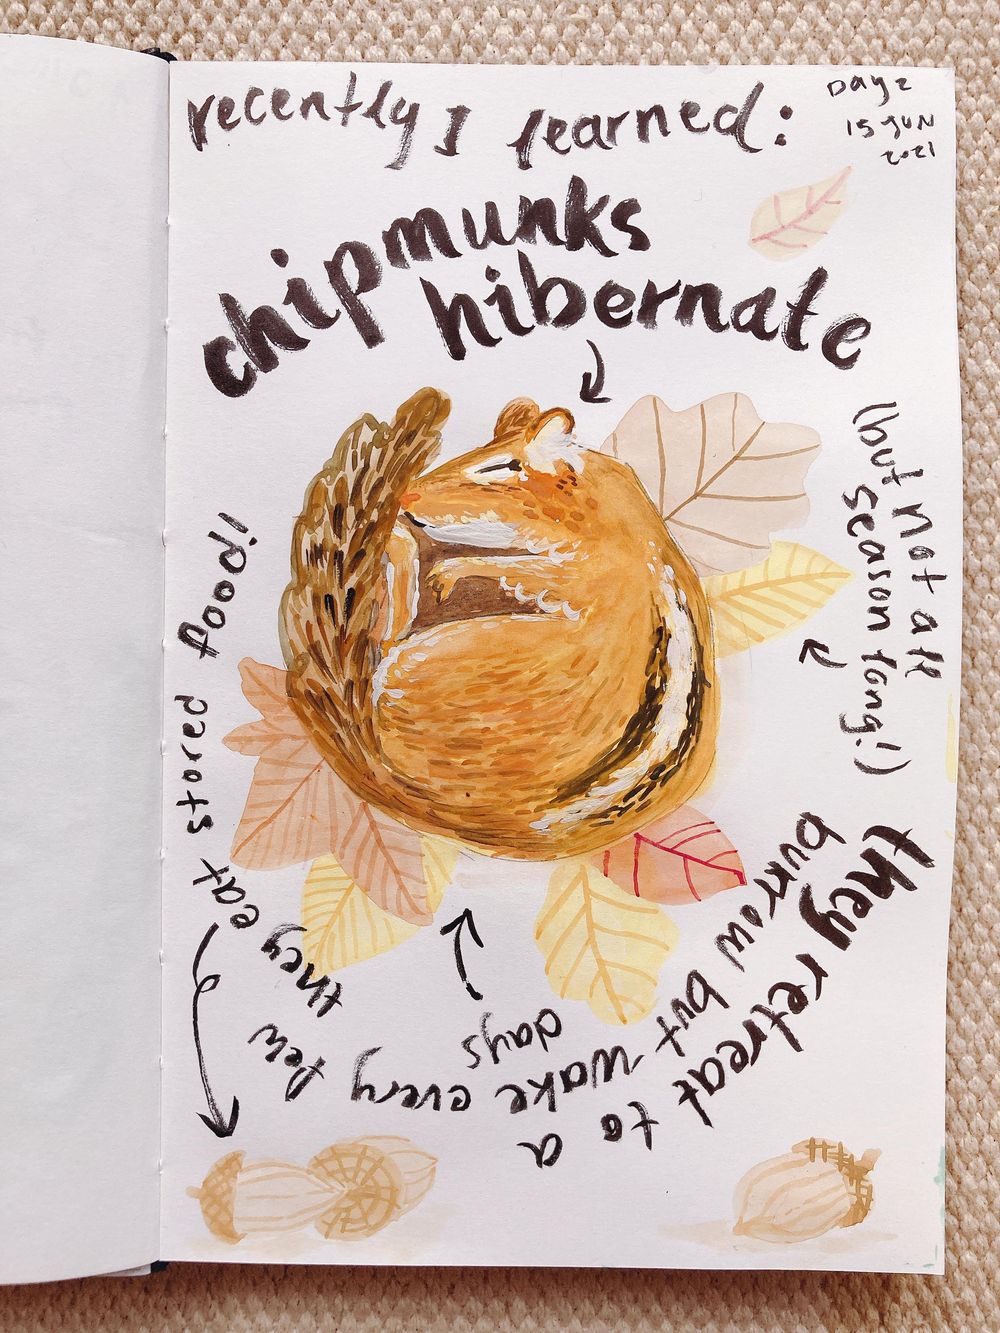 recently I learned:
Day 2
15 JUN
2021
chipmunks
hibernate
(but not all
season long!)
they retreat to a
burrow but wake every few
days
they eat stored food!